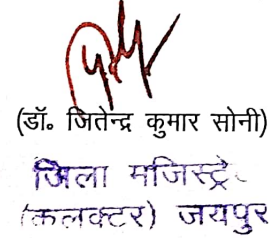 (डॉ० जितेन्द्र कुमार सोनी)
जिला मजिस्ट्रे
(कलक्टर) जयपुर